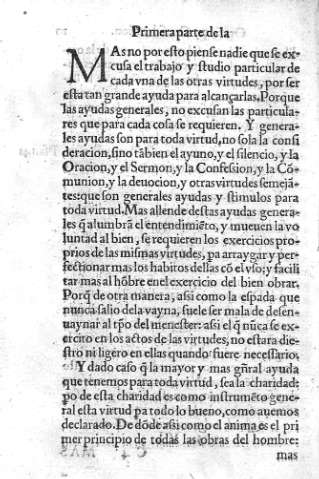 Primera parte de la
MAs no por esto piense nadie que se ex-
cusa el trabajo y studio particular de
cada vna de las otras virtudes, por ser
esta tan grande ayuda para alcançarlas. Porque
las ayudas generales, no excusan las particula-
res que para cada cosa se requieren. Y genera-
les ayudas son para toda virtud, no sola la consi
deracion, sino tãbien el ayuno, y el silencio, y la
Oracion, y el Sermon, y la Confession, y la Cõ-
munion, y la deuocion, y otras virtudes semejã-
tes: que son generales ayudas y stimulos para
toda virtud. Mas allende destas ayudas genera-
les q̃ alumbrã el entendimiẽto, y mueuen la vo
luntad al bien, se requieren los exercicios pro-
prios de las mismas virtudes, pa arraygar y per-
fectionar mas los habitos dellas cõ el vso; y facili
tar mas al hõbre en el exercicio del bien obrar.
Porq̃ de otra manera, assi como la espada que
nunca salio de la vayna, suele ser mala de desen-
uaynar al tp̃o del menester: assi el q̃ nũca se ex-
ercito en los actos de las virtudes, no estara die-
stro ni ligero en ellas quando fuere necessario.
Y dado caso q̃ la mayor y mas gñral ayuda
que tenemos para toda virtud, sea la charidad:
po de esta charidad es como instrumẽto gene-
ral esta virtud pa todo lo bueno, como auemos
declarado. De dõde assi como el anima es el pri
mer principio de todas las obras del hombre:
mas